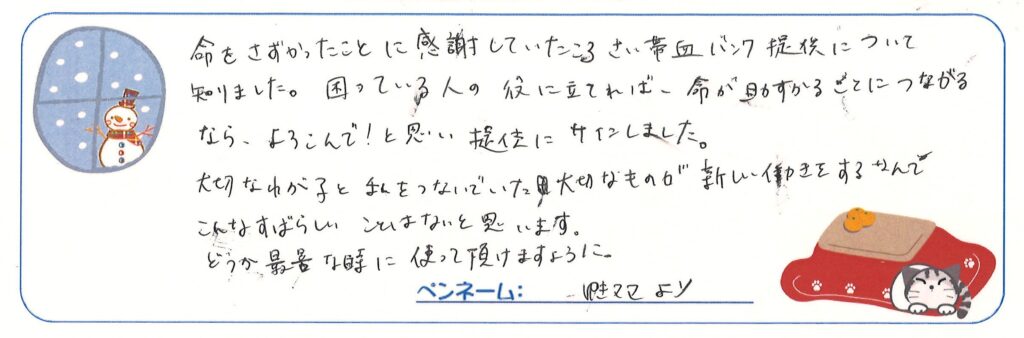 命をさずかったことに感謝していたころさい帯血バンク提供について
知りました。困っている人の役に立てれば、命が助すかることにつながる
なら、よろこんで!と思い提供にサインしました。
大切なわが子と私をつないでいた大切なものが新しい働きをするなんて
こんなすばらしいことはないと思います。
どうか最善な時に使って頂けますように。
ペンネーム: ママより